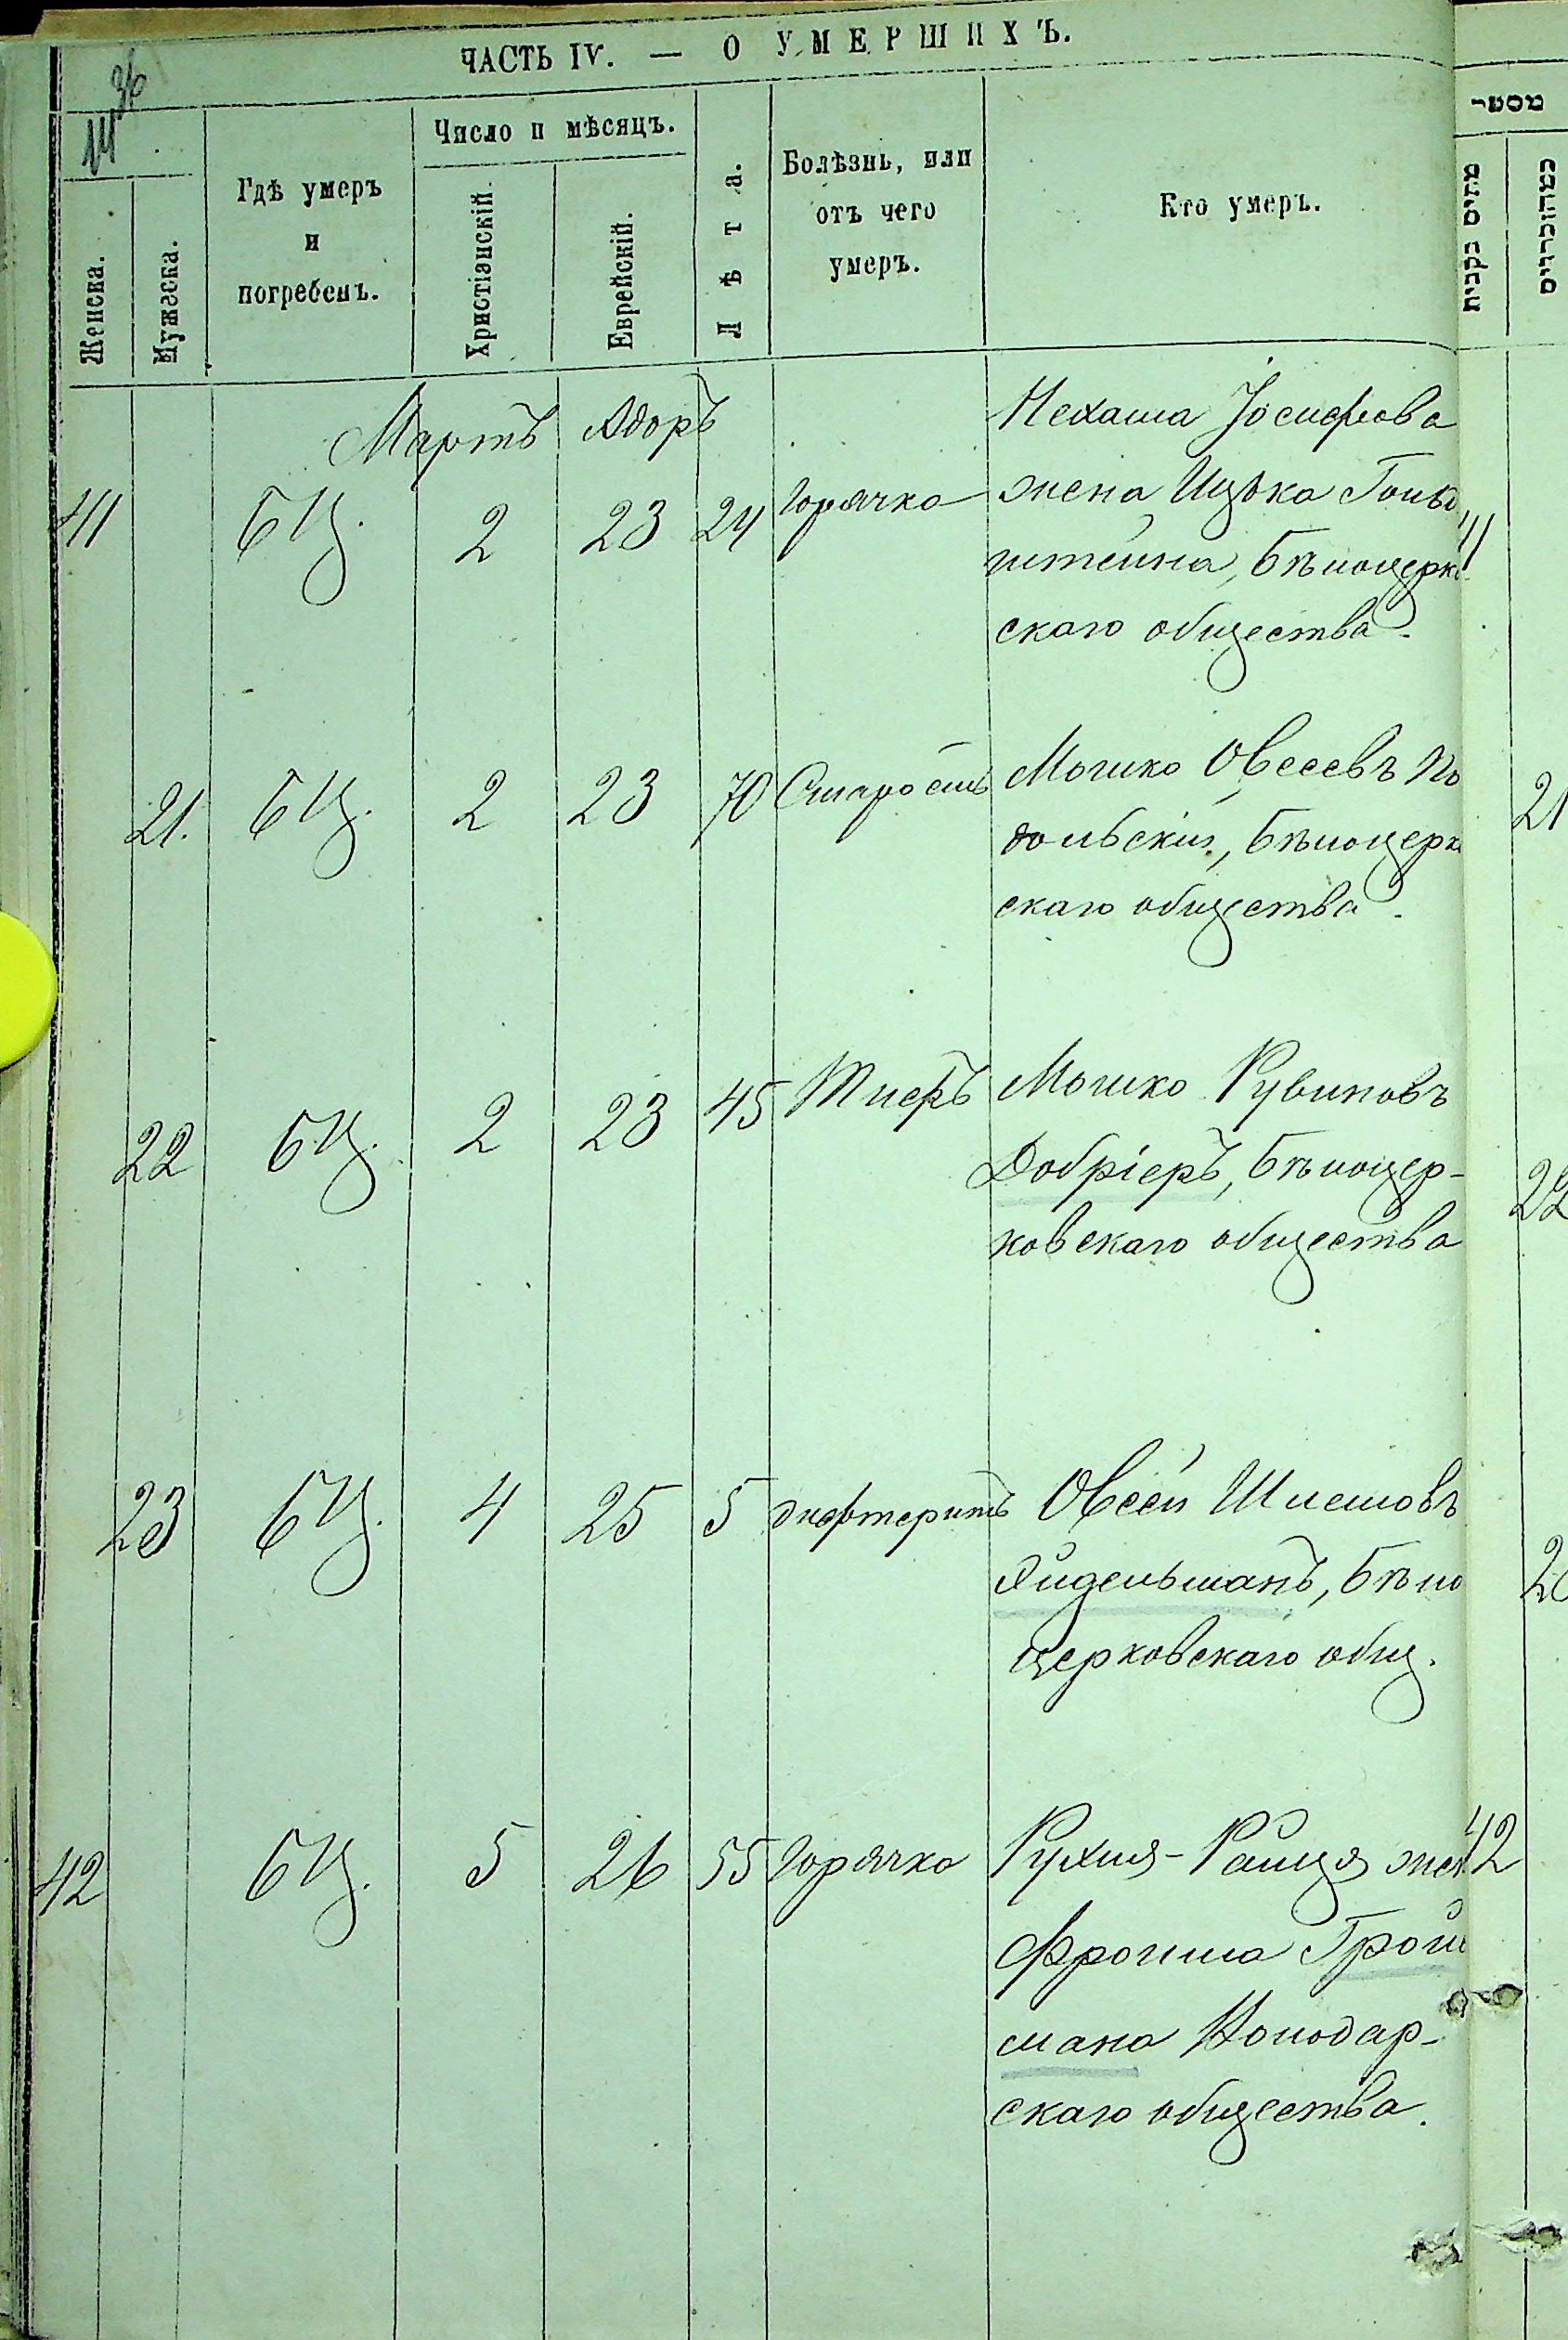 ЧАСТЬ IV. — О УМЕРШИХЪ.
36
14
Женска.
Мужеска.
Гдѣ умеръ
и
погребенъ.
Число и мѣсяцъ.
Христіанскій.
Еврейскій.
Лѣта.
Болѣзнь, или
отъ чего
умеръ.
Кто умеръ.
Мартъ Адоръ
41 БЦ. 2 23 24 Горячка
Нехама Іосифова
жена Ицька Гольд
штейна, Бѣлоцерк
скаго общества.
41
21. БЦ. 2 23 70 Старость
Мошко Овсеевъ По
дольскій, Бѣлоцерк
скаго общества.
21
22 БЦ. 2 23 45 Тифъ
Мошко Рувиновъ
Добріеръ, Бѣлоцер-
ковскаго общества
22
23 БЦ. 4 25 5 Дифтеритъ
Овсей Шлемовъ
Айдельманъ, Бѣло
церковскаго общ.
42 БЦ. 5 26 55 Горячка
Рухля-Раиця жен
Фроима Гройс
мана
скаго общества.
42